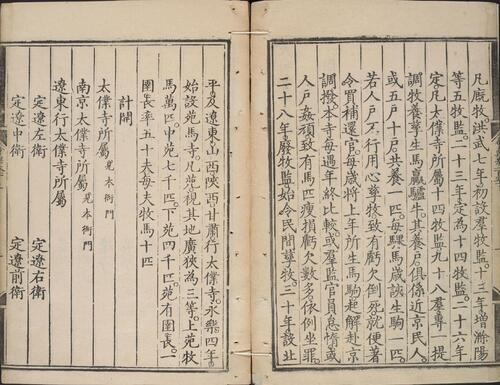 凡廐牧洪武七年初設羣牧監十三年增滁陽
等五牧監二十三年定為十四牧監二十六年
定凡太僕寺所屬十四牧監九十八羣專一提
調牧養孳生馬驘驢牛其養戶俱係近京民人
或五戶十戶共養一匹每騍馬歲該生駒一匹
若人戶不行用心孳牧致有虧欠倒死就便著
令買補還官每歲將上年所生馬駒起解赴京
調撥本寺每遇年終比較或羣監官員怠惰或
人戶姦頑致有馬匹瘦損虧欠數多依例坐罪
二十八年廢牧監始令民間孳牧三十年設北
平及遼東山西陝西甘肅行太僕寺永樂四年
始設苑馬寺凡苑視其地廣狹為三等上苑牧
馬萬匹中苑七千匹下苑四千匹苑有圉長一
圉長率五十夫每夫牧馬十匹
計開
太僕寺所屬見本衙門
南京太僕寺所屬見本衙門
遼東行太僕寺所屬
定遼左衛 定遼右衛
定遼中衛 定遼前衛